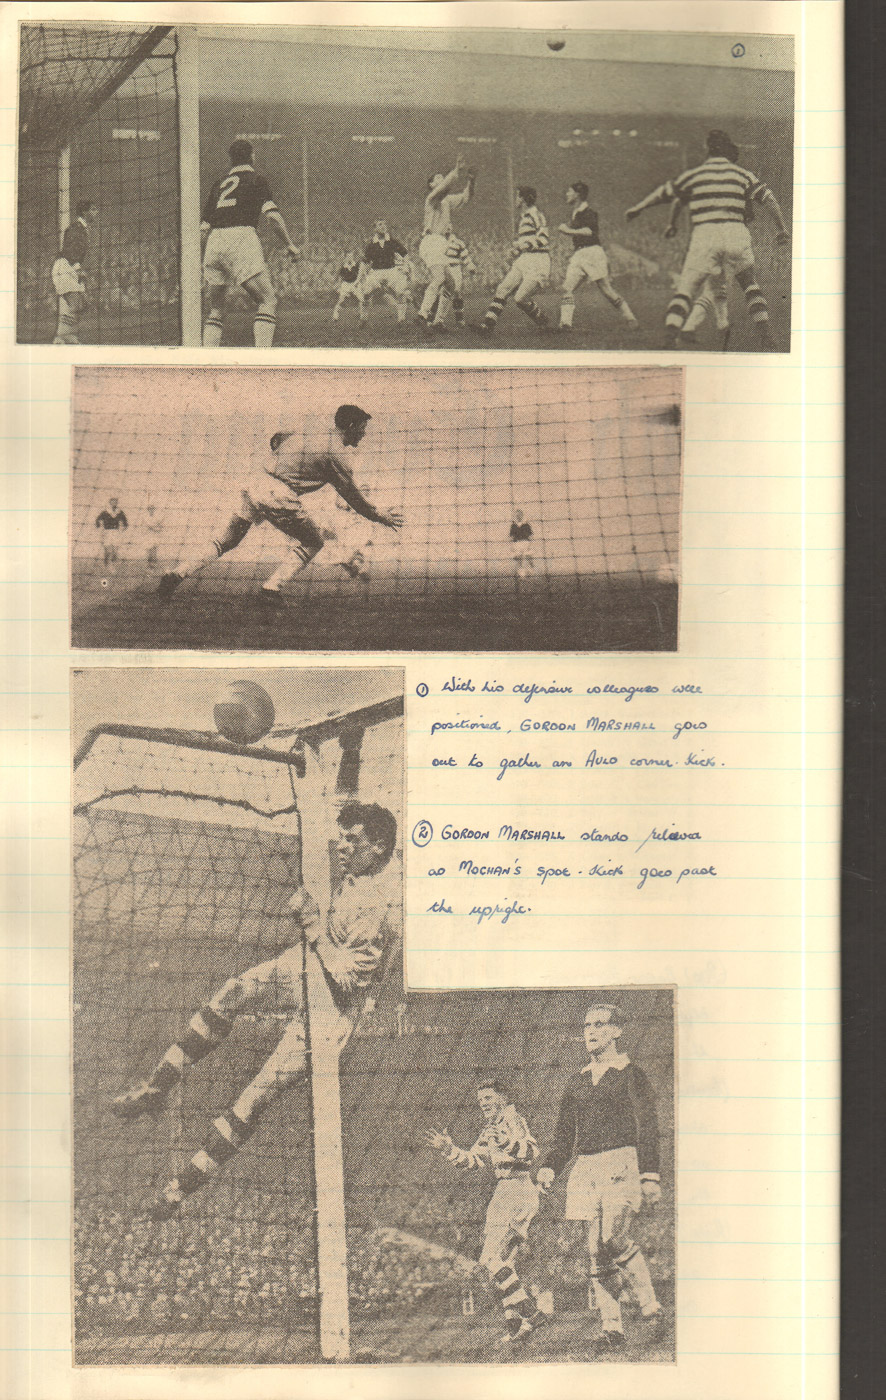 ①
2
① With his defensive colleagues well
positioned, GORDON MARSHALL goes
out to gather an AULD corner-kick.
② GORDON MARSHALL stands relieved
as MOCHAN'S spot-kick goes past
the upright.